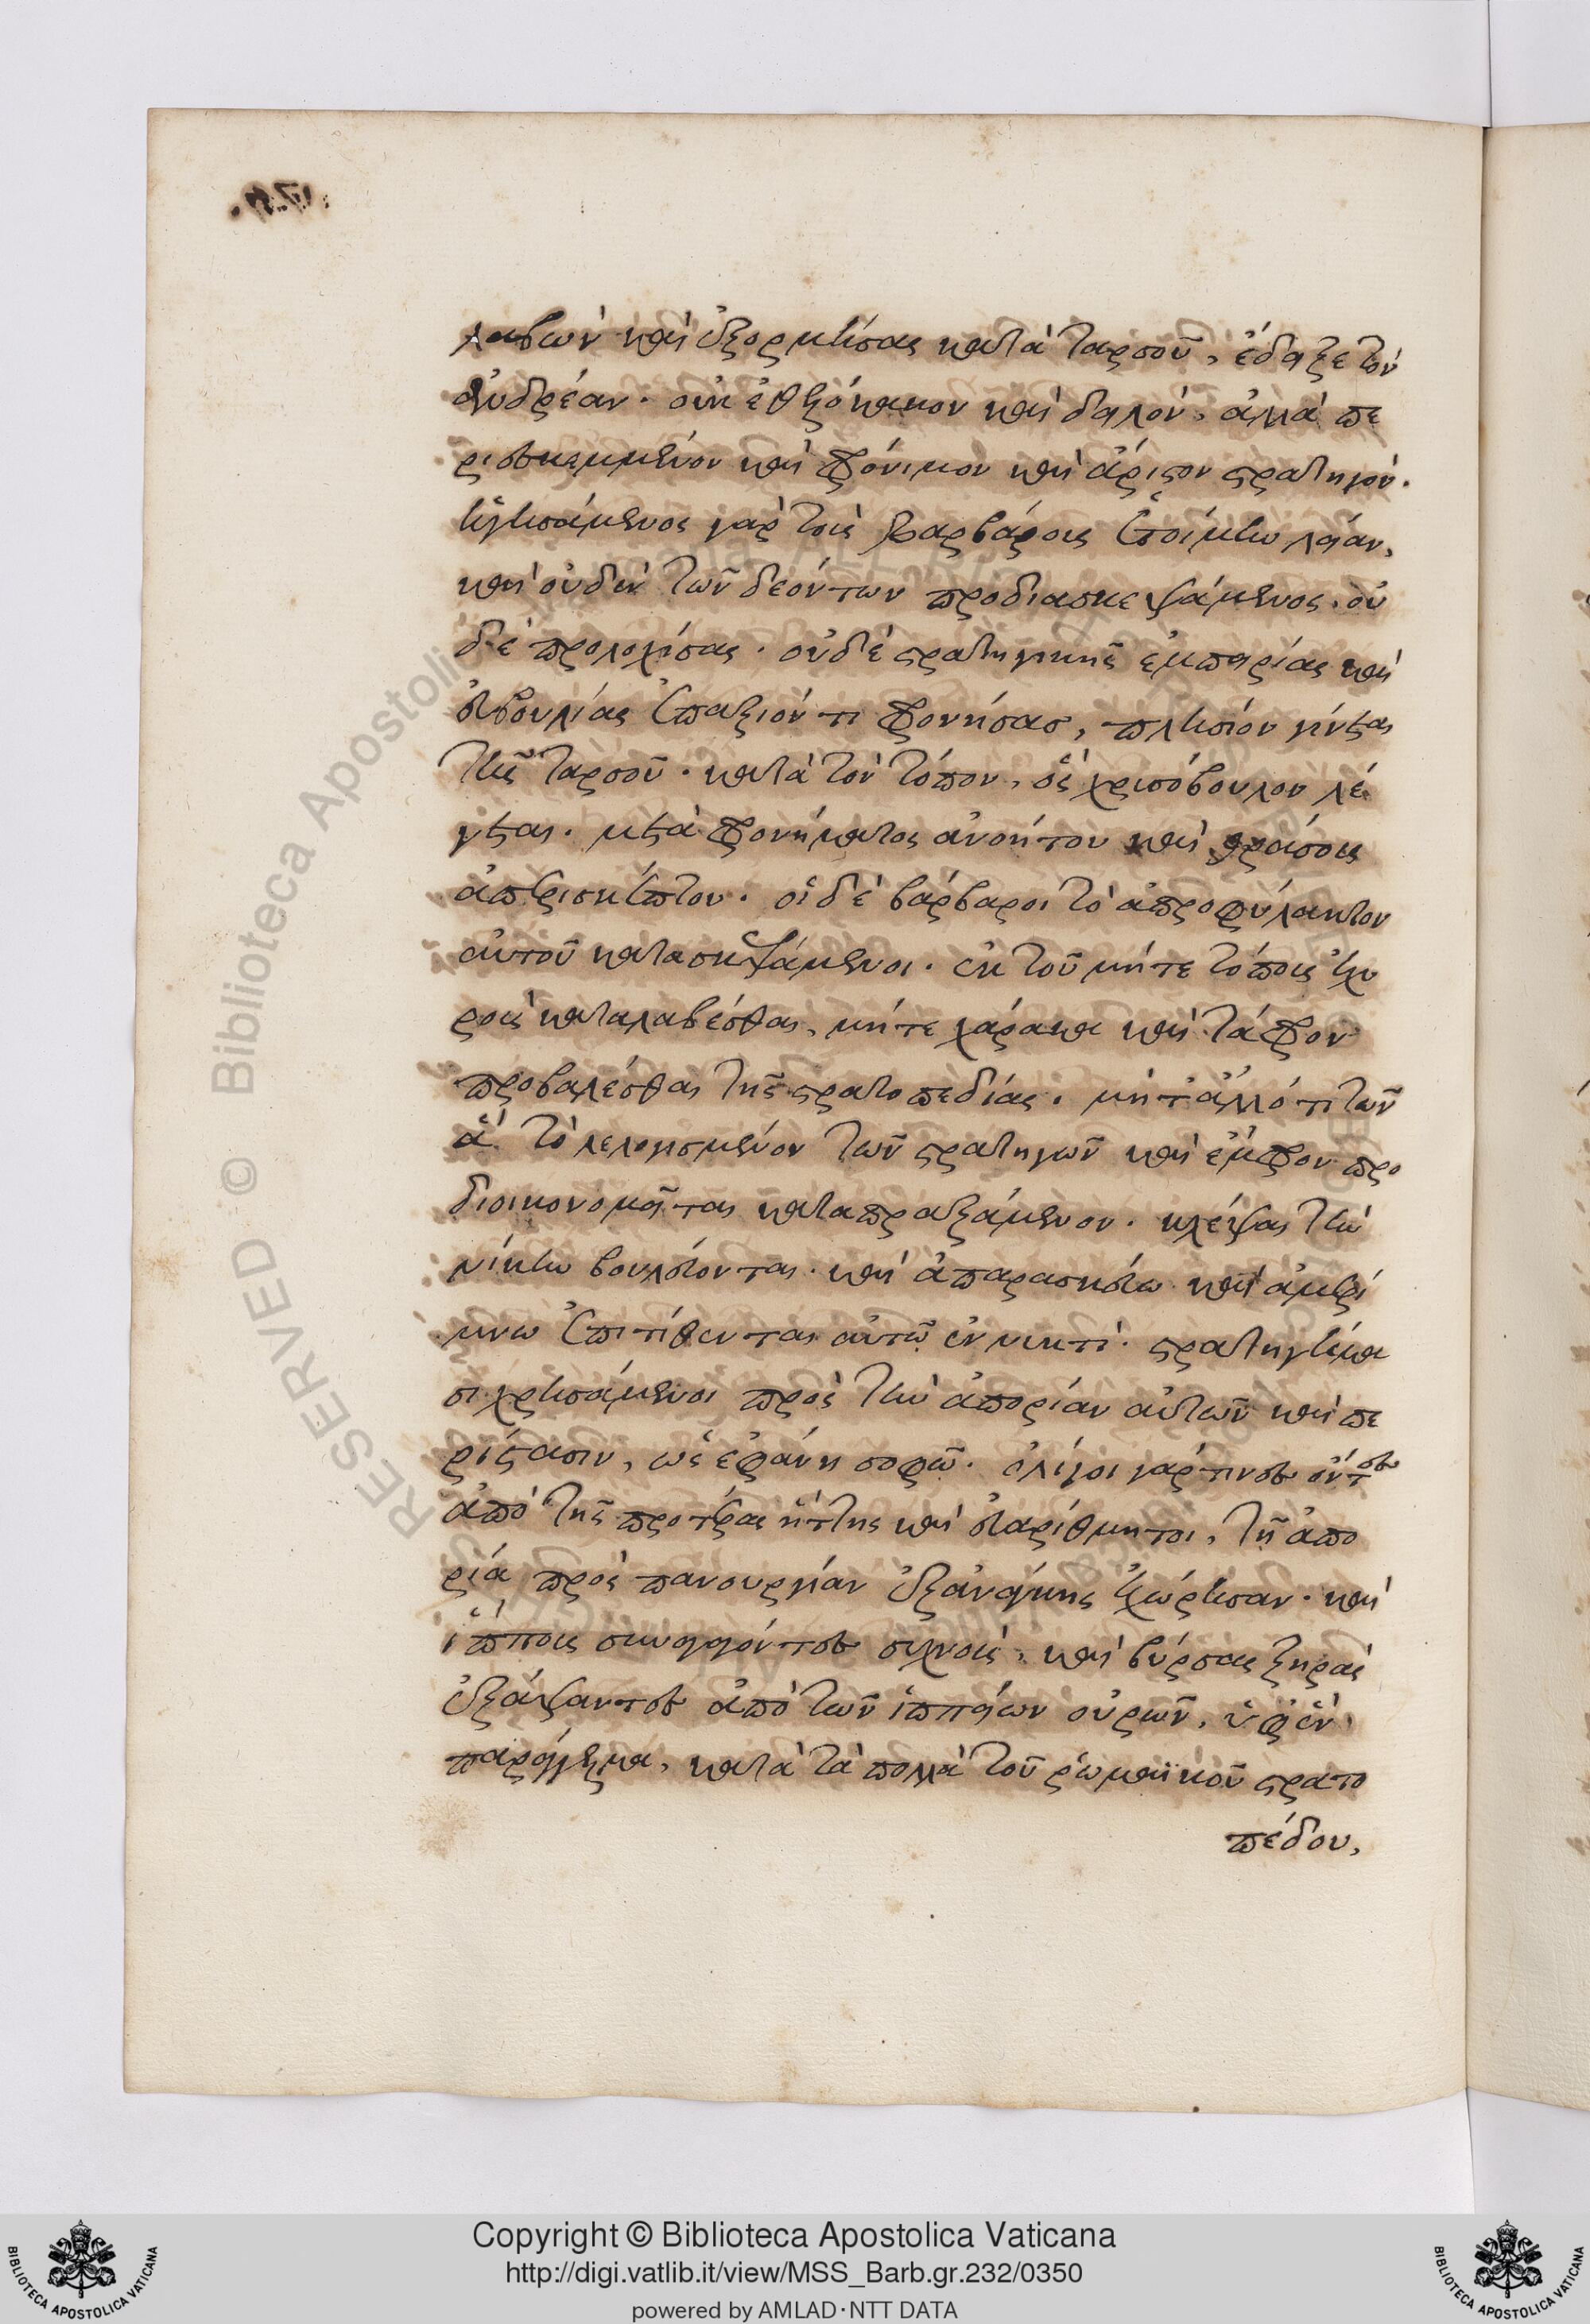 λαβὼν καὶ ἐξορμήσας κατὰ ταρσοῦ, ἔδειξε τὸν
ἀνδρέαν. οὐκ ἐθελόκακον καὶ δειλὸν, ἀλλὰ πε
ριεσκεμμένον καὶ φρόνιμον καὶ ἄριστον στρατηγόν.
ἡγησάμενος γὰρ τοῖς βαρβάροις ἑτοίμην λείαν,
καὶ οὐδὲν τῶν δεόντων προδιασκεψάμενος. οὐ
δὲ προλοχίσας. οὐδὲ στρατηγικῆς ἐμπειρίας καὶ
εὐβουλίας ἐπαξιόν τι φρονήσας, πλησίον γίνεται
τῆς ταρσοῦ. κατὰ τὸν τόπον, ὃς χρυσόβουλον λέ
γεται. μετὰ φρονήματος ἀνοήτου καὶ θράσους
ἀπερισκέπτου. οἱ δὲ βάρβαροι τὸ ἀπροφύλακτον
αὐτοῦ κατασκεψάμενοι. ἐκ τοῦ μήτε τόποις ἐχυ
ροῖς καταλαβέσθαι, μήτε χάρακα καὶ τάφρον
προβαλέσθαι τῆς στρατοπεδίας. μήτ' ἄλλό τι τῶν
ἃ τὸ λελογισμένον τῶν στρατηγῶν καὶ ἔμφρον προ
διοικονομεῖται καταπραξάμενον. κλέψαι τὴν
νίκην βουλεύονται. καὶ ἀπαρασκεύω καὶ ἀμερί
μνω ἐπιτίθενται αὐτῶ ἐν νυκτὶ. στρατηγήμα
σι χρησάμενοι πρὸς τὴν ἀπορίαν αὐτῶν καὶ πε
ρίστασιν, ὡς ἐφάνη σοφῶ. ὀλίγοι γάρ τινες ὄντες
ἀπὸ τῆς προτέρας ἥττης καὶ εὐαρίθμητοι, τῆ ἀπο
ρία πρὸς πανουργίαν ἐξανάγκης ἐχώρησαν. καὶ
ἵπποις συναγαγόντες συχνοὺς, καὶ βύρσας ξηρὰς
ἐξάψαντες ἀπὸ τῶν ἱππείων οὐρῶν, ὑφὲν
παράγγελμα, κατὰ τὰ πολλὰ τοῦ ῥωμαϊκοῦ στρατο
πέδου,
Copyright © Biblioteca Apostolica Vaticana
http://digi.vatlib.it/view/MSS_Barb.gr.232/0350
powered by AMLAD·NTT DATA